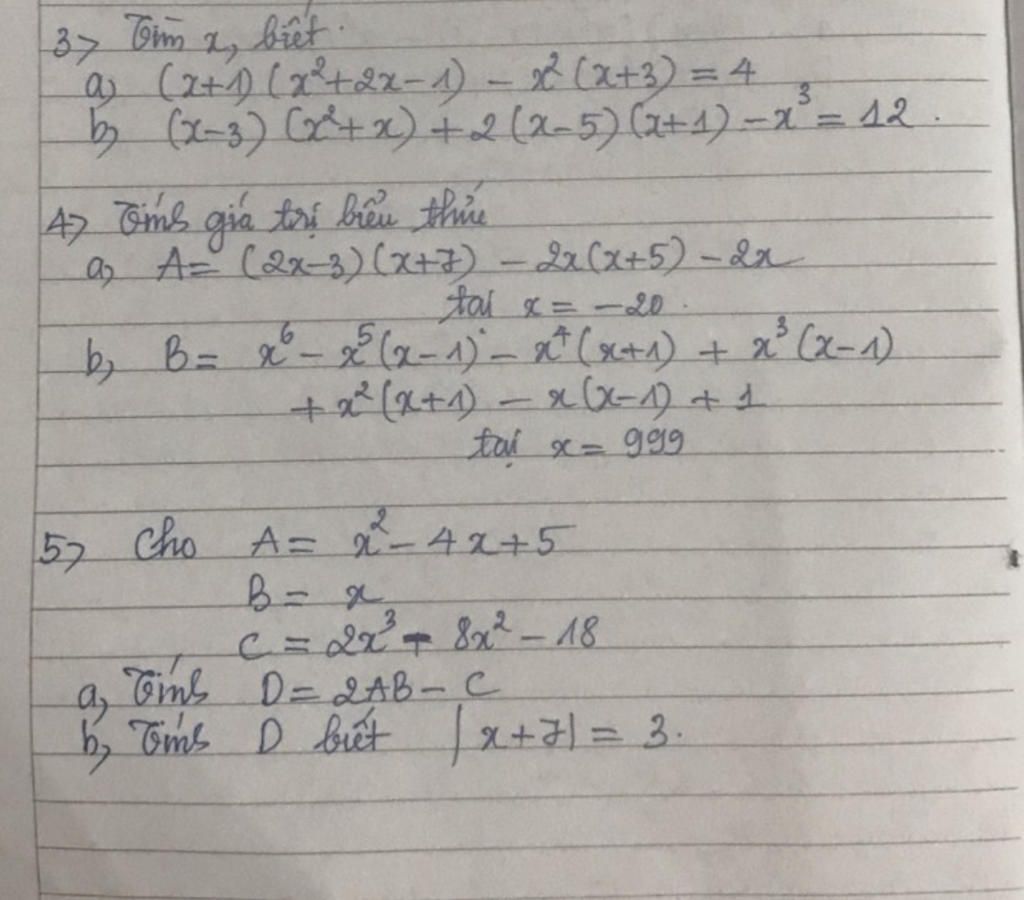 3> Tìm x, biết.
a) (x+1)(x²+2x-1) - x²(x+3) = 4
b) (x-3)(x²+x) + 2(x-5)(x+1) - x³ = 12.
4> Tính giá trị biểu thức
a, A= (2x-3)(x+7) - 2x(x+5) - 2x
tại x = -20.
b, B= x⁶ - x⁵(x-1) - x⁴(x+1) + x³(x-1)
+ x²(x+1) - x(x-1) + 1
tại x = 999
5> Cho A= x² - 4x+5
B= x
C = 2x³ - 8x² - 18
a, Tính D= 2AB - C
b, Tính D biết |x+7| = 3.